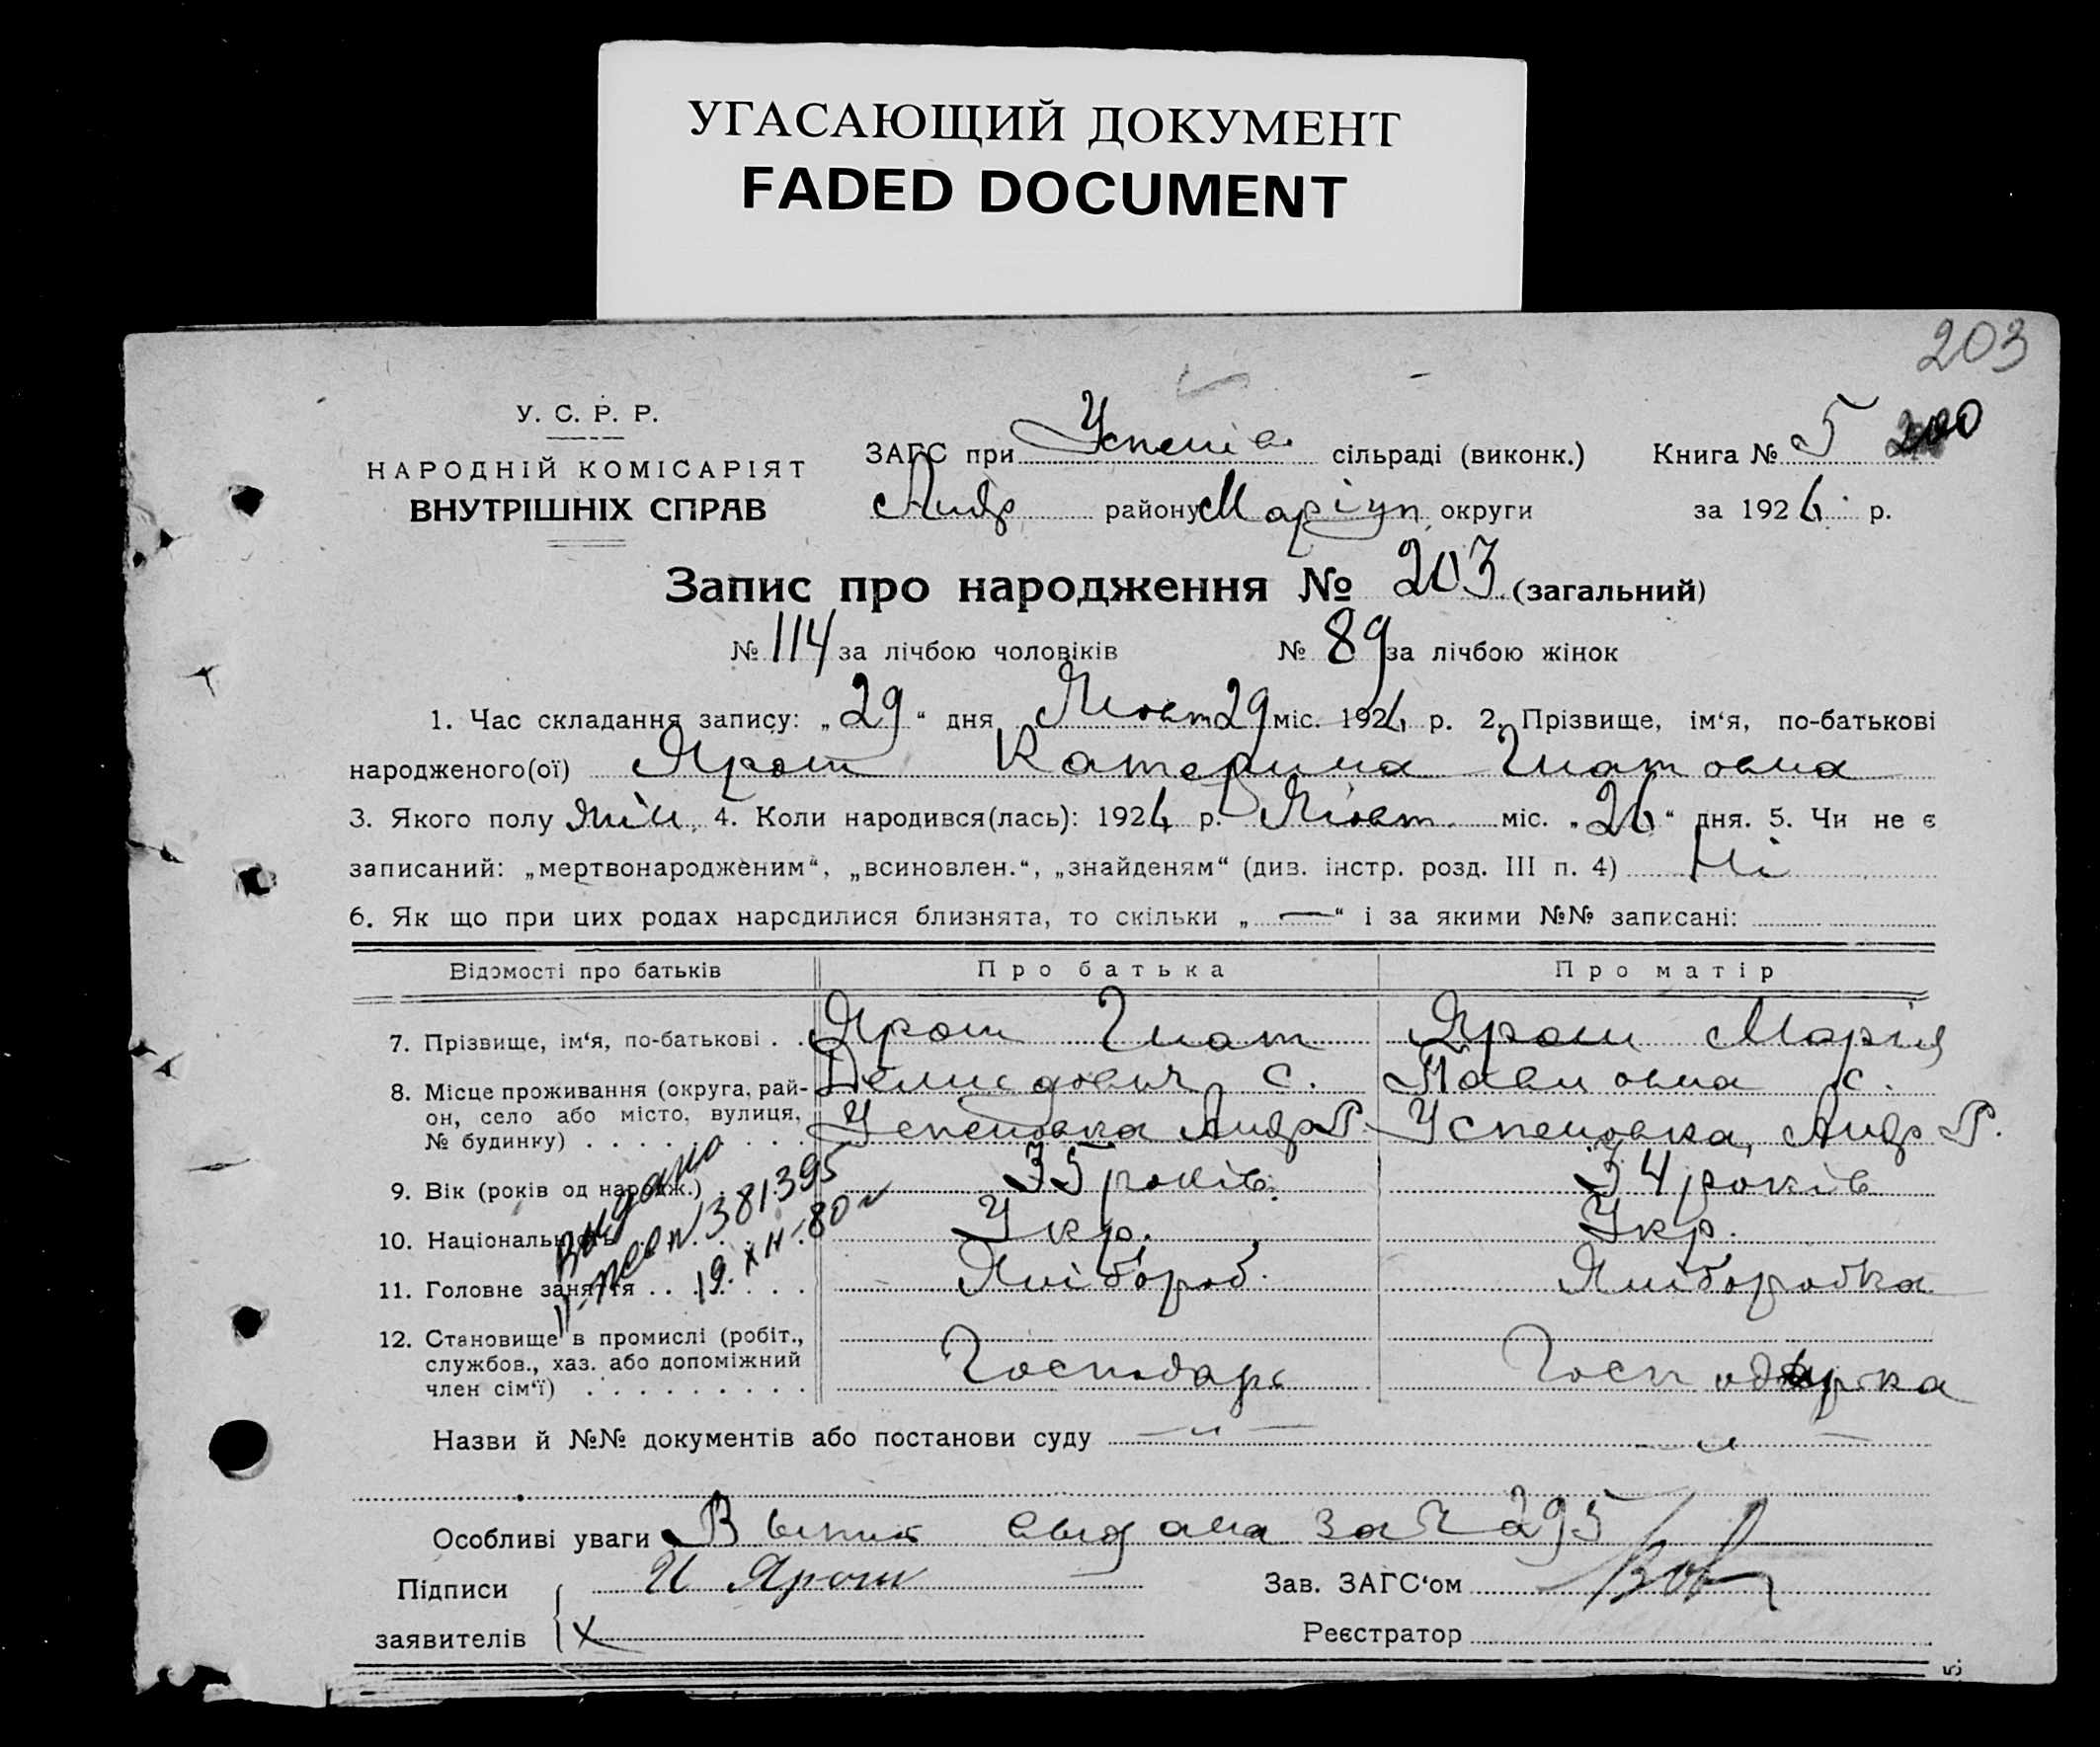 УГАСАЮЩИЙ ДОКУМЕНТ
FADED DOCUMENT
203
У. С. Р. Р.
НАРОДНІЙ КОМІСАРІЯТ
ВНУТРІШНІХ СПРАВ
ЗАГС при Успенів сільраді (виконк.) Книга № 5 200
Андр району Маріуп. округи за 1926 р.
Запис про народження № 203 (загальний)
№ 114 за лічбою чоловіків № 89 за лічбою жінок
1. Час складання запису: „29“ дня Жовт 29 міс. 1926 р. 2. Прізвище, ім‘я, по-батькові
народженого(ої) Ярош Катерина Гнатовна
3. Якого полу жін. 4. Коли народився(лась): 1926 р. Жовт. міс. „26“ дня. 5. Чи не є
записаний: „мертвонародженим“, „всиновлен.“, „знайденям“ (див. інстр. розд. III п. 4) Ні
6. Як що при цих родах народилися близнята, то скільки „—“ і за якими №№ записані:
Відомості про батьків Про батька Про матір
7. Прізвище, ім‘я, по-батькові . . Ярош Гнат Ярош Марія
8. Місце проживання (округа, рай- Демидович с. Павловна с.
он, село або місто, вулиця, Успеновка Андр Р. Успеновка, Андр Р.
№ будинку)
9. Вік (років од народж.) 35 років. 34 років
10. Національність Укр. Укр.
11. Головне заняття Хлібороб. Хліборобка
12. Становище в промислі (робіт.,
службов., хаз. або допоміжний Господарь Господарка
член сім‘ї)
Видано
381395
19. XII-80
Назви й №№ документів або постанови суду — „ — — „ —
Особливі уваги Выпис выдана за № 295
Підписи И Ярош Зав. ЗАГС‘ом
заявителів X Реєстратор
5.